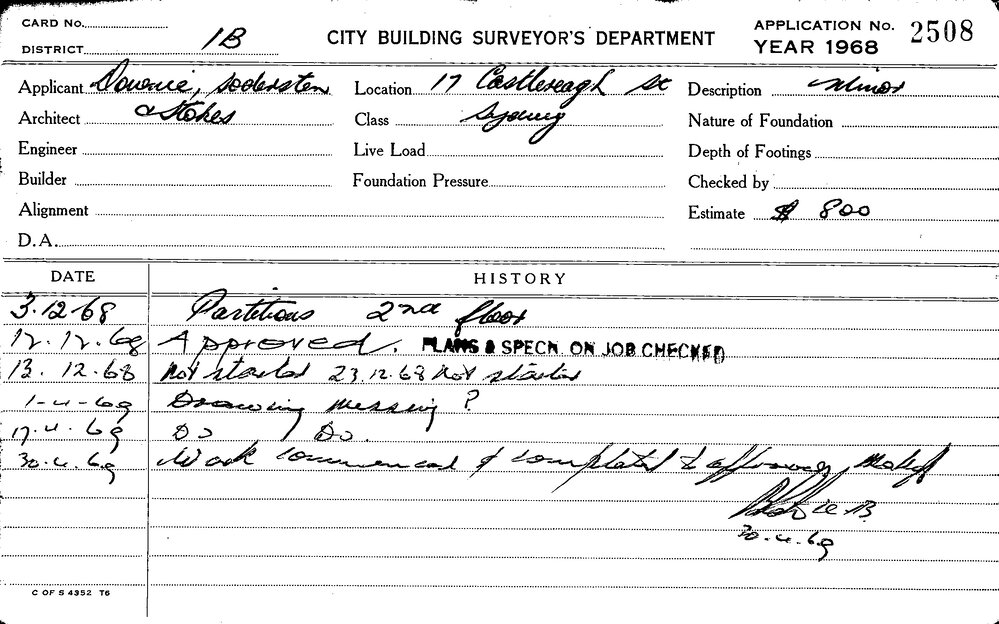 CARD No.
DISTRICT 1B
CITY BUILDING SURVEYOR'S DEPARTMENT
APPLICATION No. 2508
YEAR 1968
Applicant Downie, Sodersten
Location 17 Castlereagh St
Description Minor
Architect & Stokes
Class Sydney
Nature of Foundation
Engineer
Live Load
Depth of Footings
Builder
Foundation Pressure
Checked by
Alignment
Estimate $ 800
D.A.
DATE HISTORY
3.12.68 Partitions 2nd floor
12.12.68 Approved. PLANS & SPECN. ON JOB CHECKED
13.12.68 Not started 23.12.68 Not started
1-4-69 Drawing missing ?
17.4.69 Do / Do.
30.4.69 Work commenced & completed
30.4.69
C OF S 4352 T6